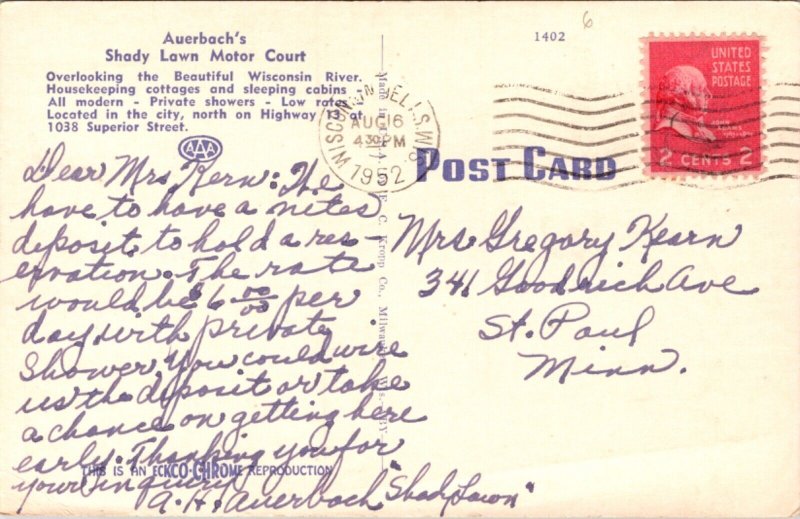 Auerbach's
Shady Lawn Motor Court
Overlooking the Beautiful Wisconsin River.
Housekeeping cottages and sleeping cabins -
All modern - Private showers - Low rates
Located in the city, north on Highway 13 at
1038 Superior Street.
AAA
Dear Mrs Kern: We
have to have a nites
deposit to hold a res-
ervation. The rate
would be $6 00/00 per
day, with private
shower. You could wire
us the deposit or take
a chance on getting here
early. Thanking you for
your inquiry
A. H. Auerbach "Shady Lawn"
THIS IS AN ECKCO-CHROME REPRODUCTION
Made
E. C. Kropp Co., Milwaukee, Wis.
1402
6
WISCONSIN DELLS, WIS
AUG 16
430 PM
1952
POST CARD
UNITED
STATES
POSTAGE
JOHN
ADAMS
2 CENTS 2
Mrs Gregory Kearn
341 Goodrich Ave
St. Paul
Minn.